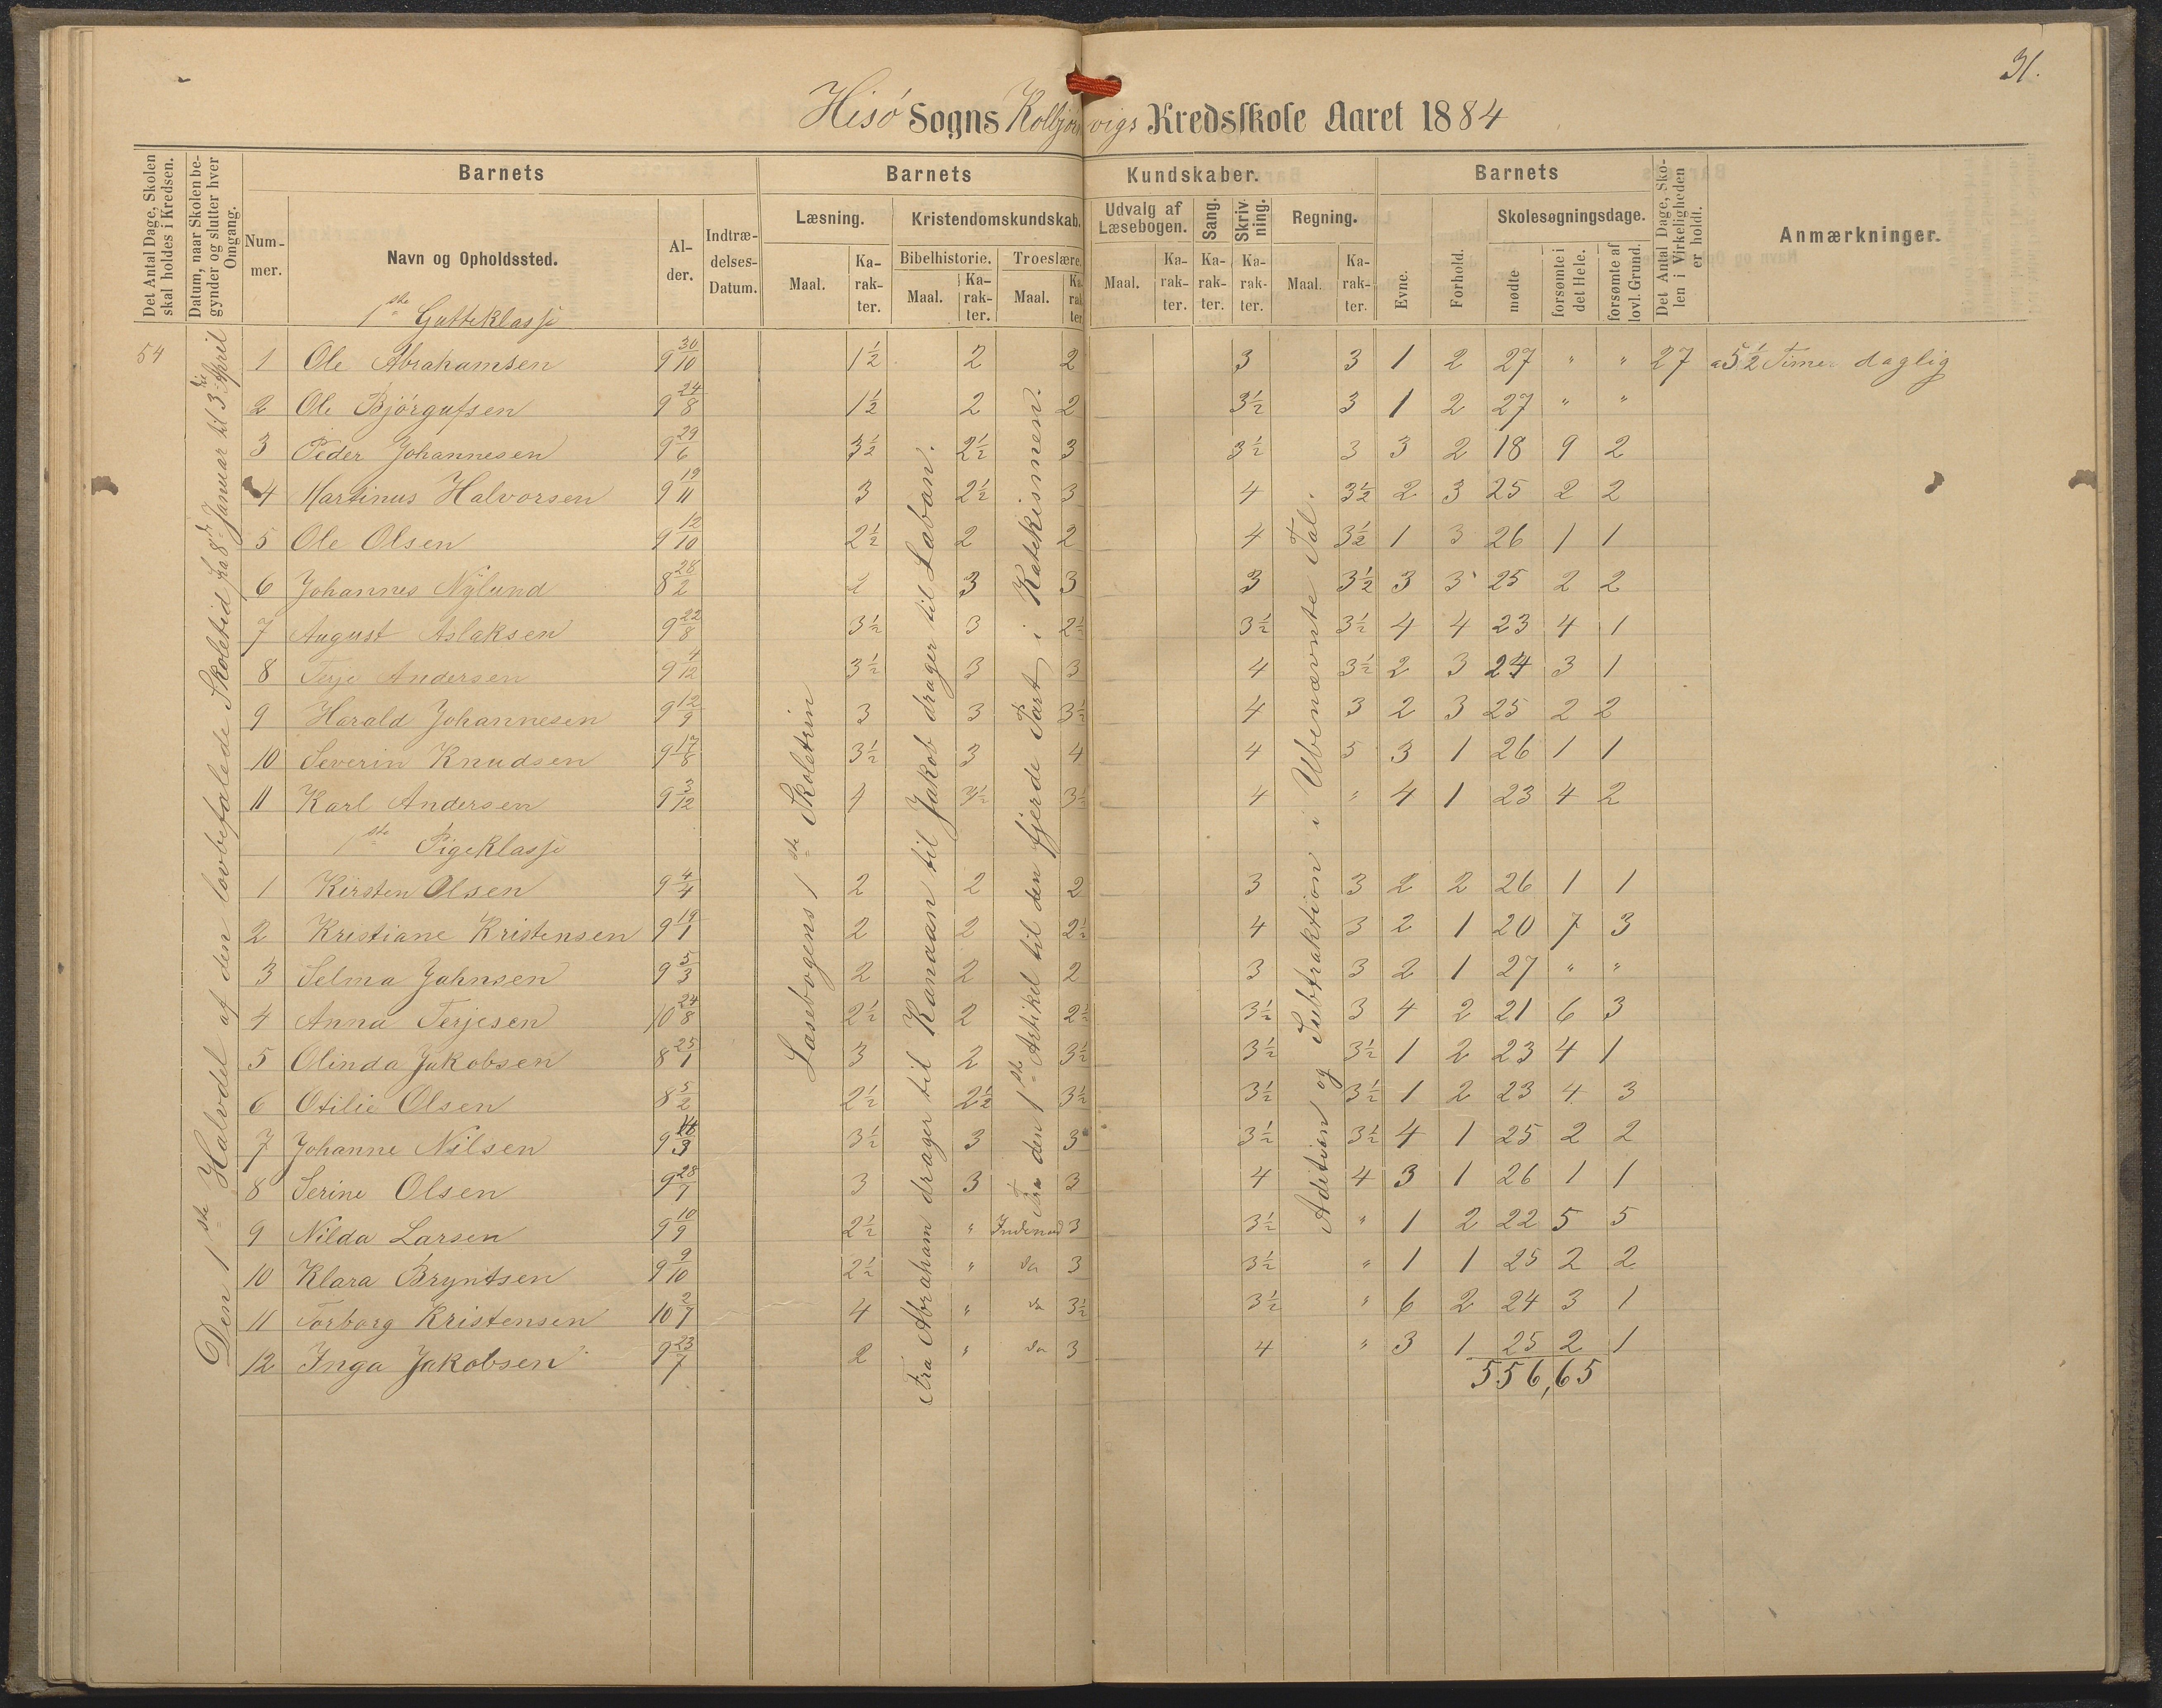 31.
Hisö Sogns Kolbjörnvigs Kredsskole Aaret 1884
Det Antal Dage, Skolen skal holdes i Kredsen.
Datum, naar Skolen begynder og slutter hver Omgang.
Barnets
Nummer.
Navn og Opholdssted.
Alder.
Indtrædelses-Datum.
Barnets Kundskaber.
Læsning.
Maal.
Karakter.
Kristendomskundskab.
Bibelhistorie.
Maal.
Karakter.
Troeslære.
Maal.
Karakter.
Udvalg af Læsebogen.
Maal.
Karakter.
Sang.
Karakter.
Skrivning.
Karakter.
Regning.
Maal.
Karakter.
Barnets
Evne.
Forhold.
Skolesøgningsdage.
mødte
forsømte i det Hele.
forsømte af lovl. Grund.
Det Antal Dage, Skolen i Virkeligheden er holdt.
Anmærkninger.
54
Den 1ste Halvdel af den lovbefalede Skoletid fra 8de Januar til 3die April
Læsebogens 1ste Skoletrin
Fra Abraham drager til Kanaan til Jakob drager til Laban.
Fra den 1ste Artikel til den fjerde Part i Katekismen.
Adition og Subtraktion i Ubenævnte Tal.
1ste Gutteklasse
1 Ole Abrahamsen 9 30/10 1½ 2 2 3 3 1 2 27 " " 27 a 5½ Timer daglig
2 Ole Bjørgufsen 9 24/8 1½ 2 2 3½ 3 1 2 27 " "
3 Peder Johannesen 9 29/6 3½ 2½ 3 3½ 3 3 2 18 9 2
4 Martinus Halvorsen 9 19/11 3 2½ 3 4 3½ 2 3 25 2 2
5 Ole Olsen 9 12/10 2½ 2 2 4 3½ 1 3 26 1 1
6 Johannes Nylund 8 28/2 2 3 3 3 3½ 3 3 25 2 2
7 August Aslaksen 9 22/8 3½ 3 2½ 3½ 3½ 4 4 23 4 1
8 Terje Andersen 9 4/12 3½ 3 3 4 3½ 2 3 24 3 1
9 Harald Johannesen 9 12/9 3 3 3½ 4 3 2 3 25 2 2
10 Severin Knudsen 9 17/8 3½ 3 4 4 5 3 1 26 1 1
11 Karl Andersen 9 3/12 4 3½ 3½ 4 " 4 1 23 4 2
1ste Pigeklasse
1 Kirsten Olsen 9 4/4 2 2 2 3 3 2 2 26 1 1
2 Kristiane Kristensen 9 19/1 2 2 2½ 4 3 2 1 20 7 3
3 Selma Jahnsen 9 5/3 2 2 2 3 3 2 1 27 " "
4 Anna Terjesen 10 24/8 2½ 2 2½ 3½ 3 4 2 21 6 3
5 Olinda Jakobsen 8 25/1 3 2 3½ 3½ 3½ 1 2 23 4 1
6 Otilie Olsen 8 5/2 2½ 2½ 3½ 3½ 3½ 1 2 23 4 3
7 Johanne Nilsen 9 /3 3½ 3 3 3½ 3½ 4 1 25 2 2
8 Serine Olsen 9 28/7 3 3 3 4 4 3 1 26 1 1
9 Nilda Larsen 9 10/9 2½ " 3 3½ " 1 2 22 5 5
10 Klara Bryntsen 9 9/10 2½ " do 3 3½ " 1 1 25 2 2
11 Torborg Kristensen 10 2/7 4 " do 3½ 3½ " 6 2 24 3 1
12 Inga Jakobsen 9 23/7 2 " do 3 4 " 3 1 25 2 1
556,65